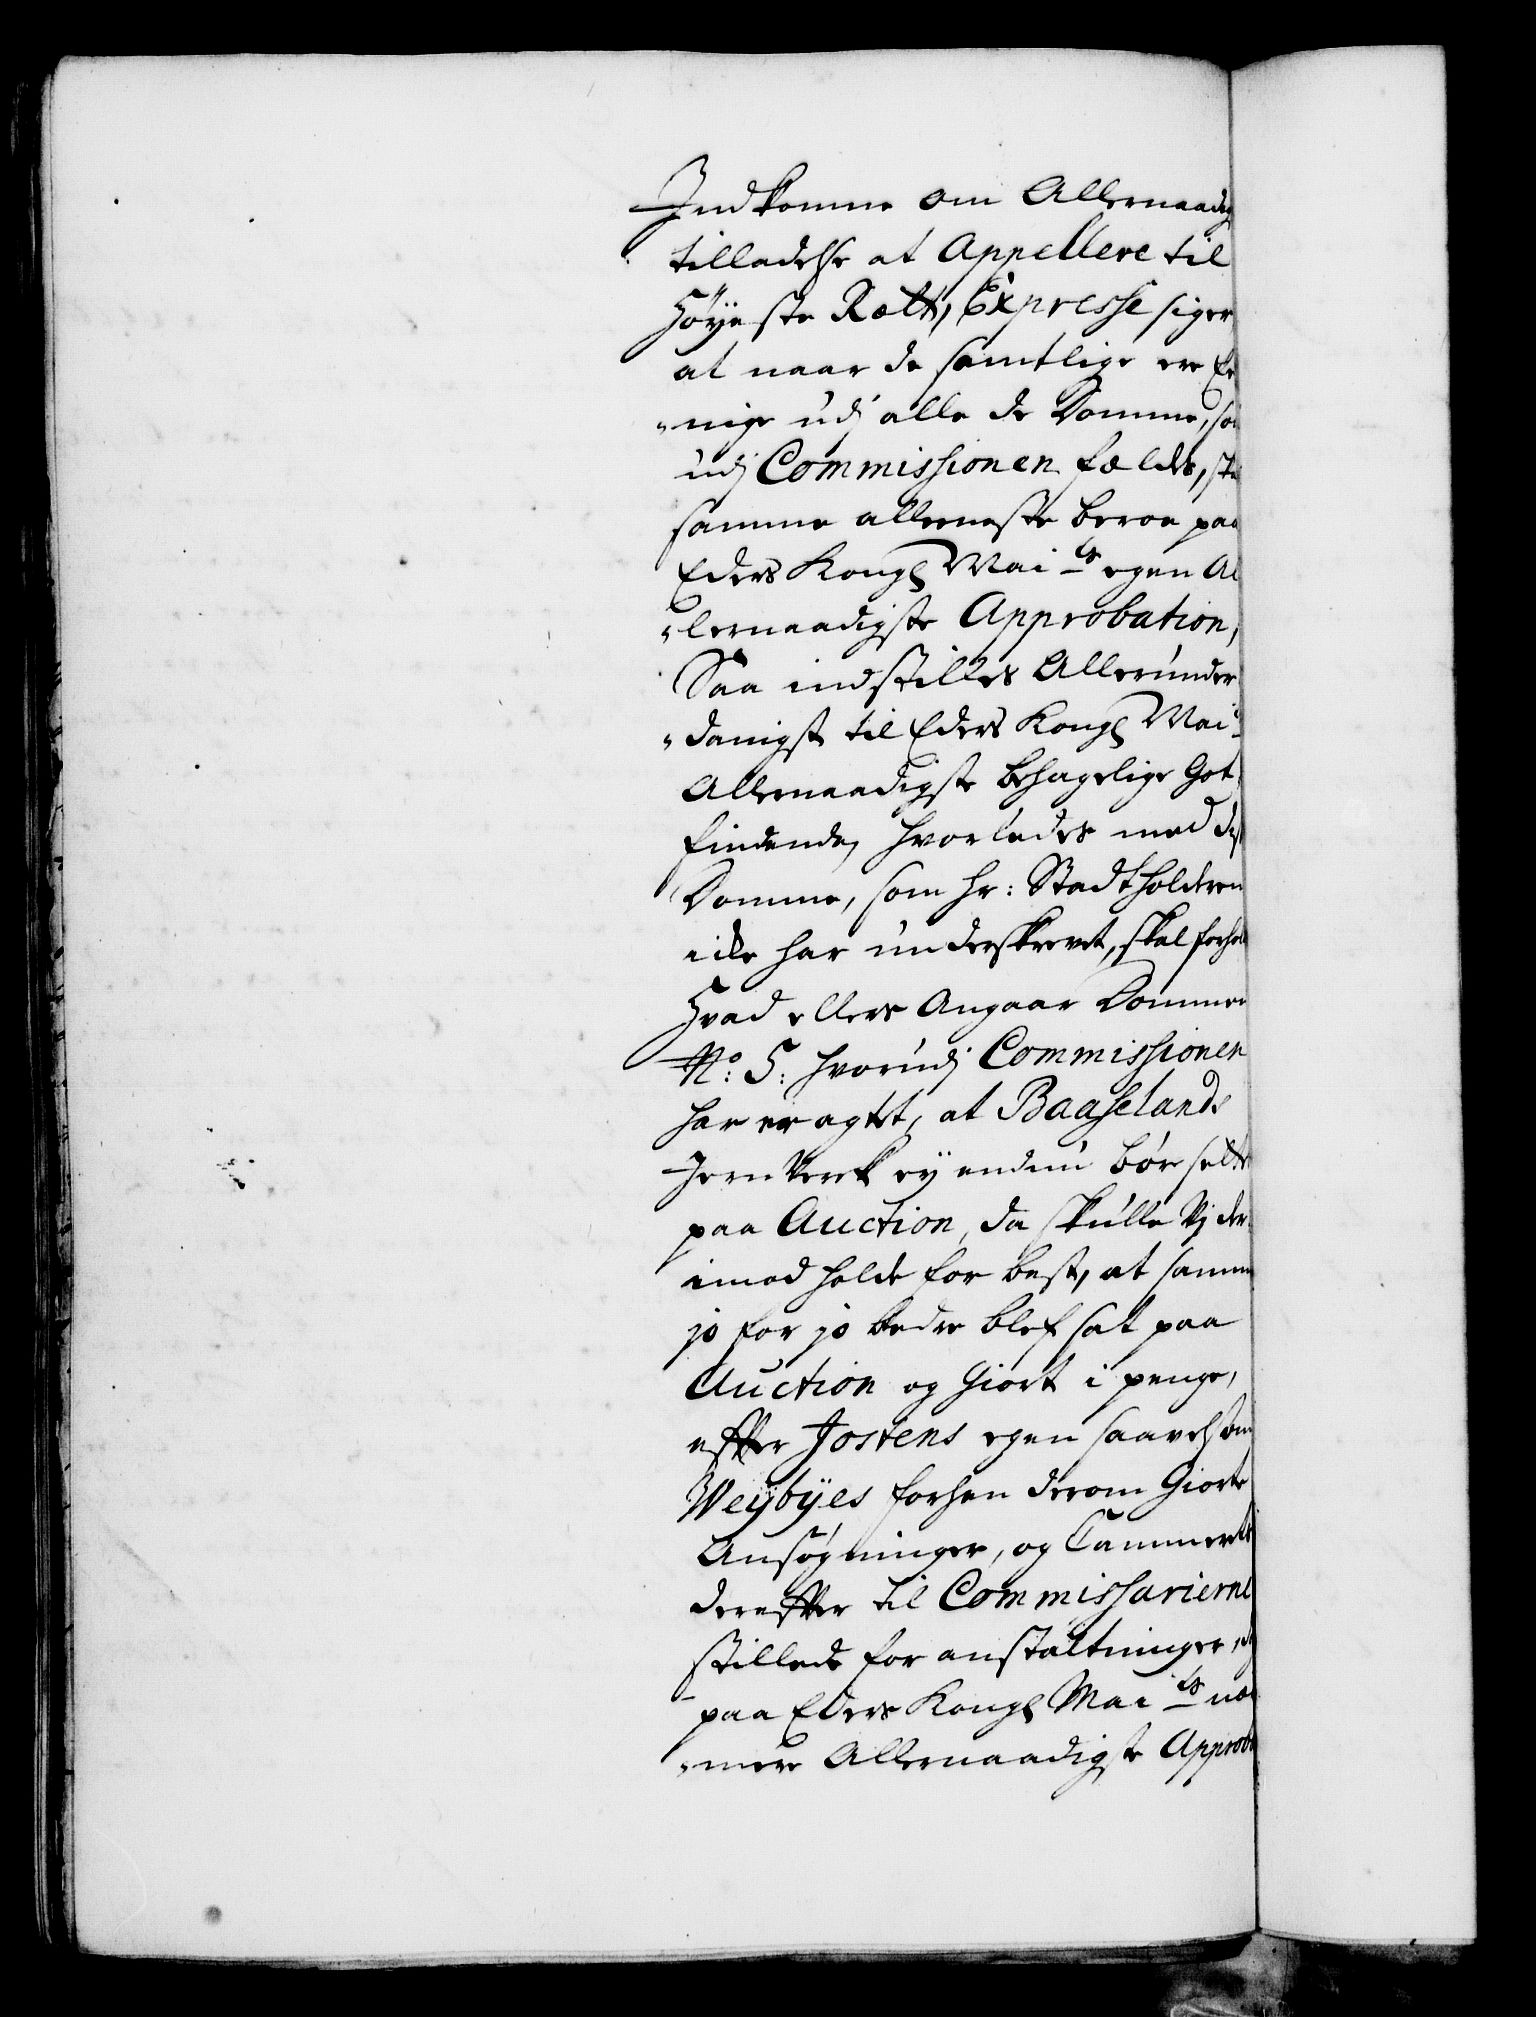 Indkomme om Allernaadig
tilladelse at Appellere til
Høyeste Rætt, Expresse siger
at naar de samtlige ere Ee
"nige udj alle de Domme, so
udj Commissionen fældes, ska
samme alleeneste beroe paa
Eders Kongl Mai ts egen Al
"lernaadigste Approbation,
Saa indstilles Allerunder
"danigst til Eders Kongl Mai ts
Allernaadigste behagelige Got
findende, hvorledes med de
Domme, som hr: Stadtholderen
icke har underskrevet, skal forhol
Hvad ellers Angaar Dommen
No: 5: hvorudj Commissionen
har eragtet, at Baaselands
Jern Verk ey endnu bør sette
paa Auction, da skulle Vj der
imod holde for best, at samme
jo før jo bedre blef sat paa
Auction og Giort i penge,
efter Jostens egen saavelsom
Weybyes forhen derom Giorte
Ansøgninger, og Cammerets
derefter til Commissarierne
stillede for anstaltninger,
paa Eders Kongl Mai ts
"mere Allernaadigste Approba